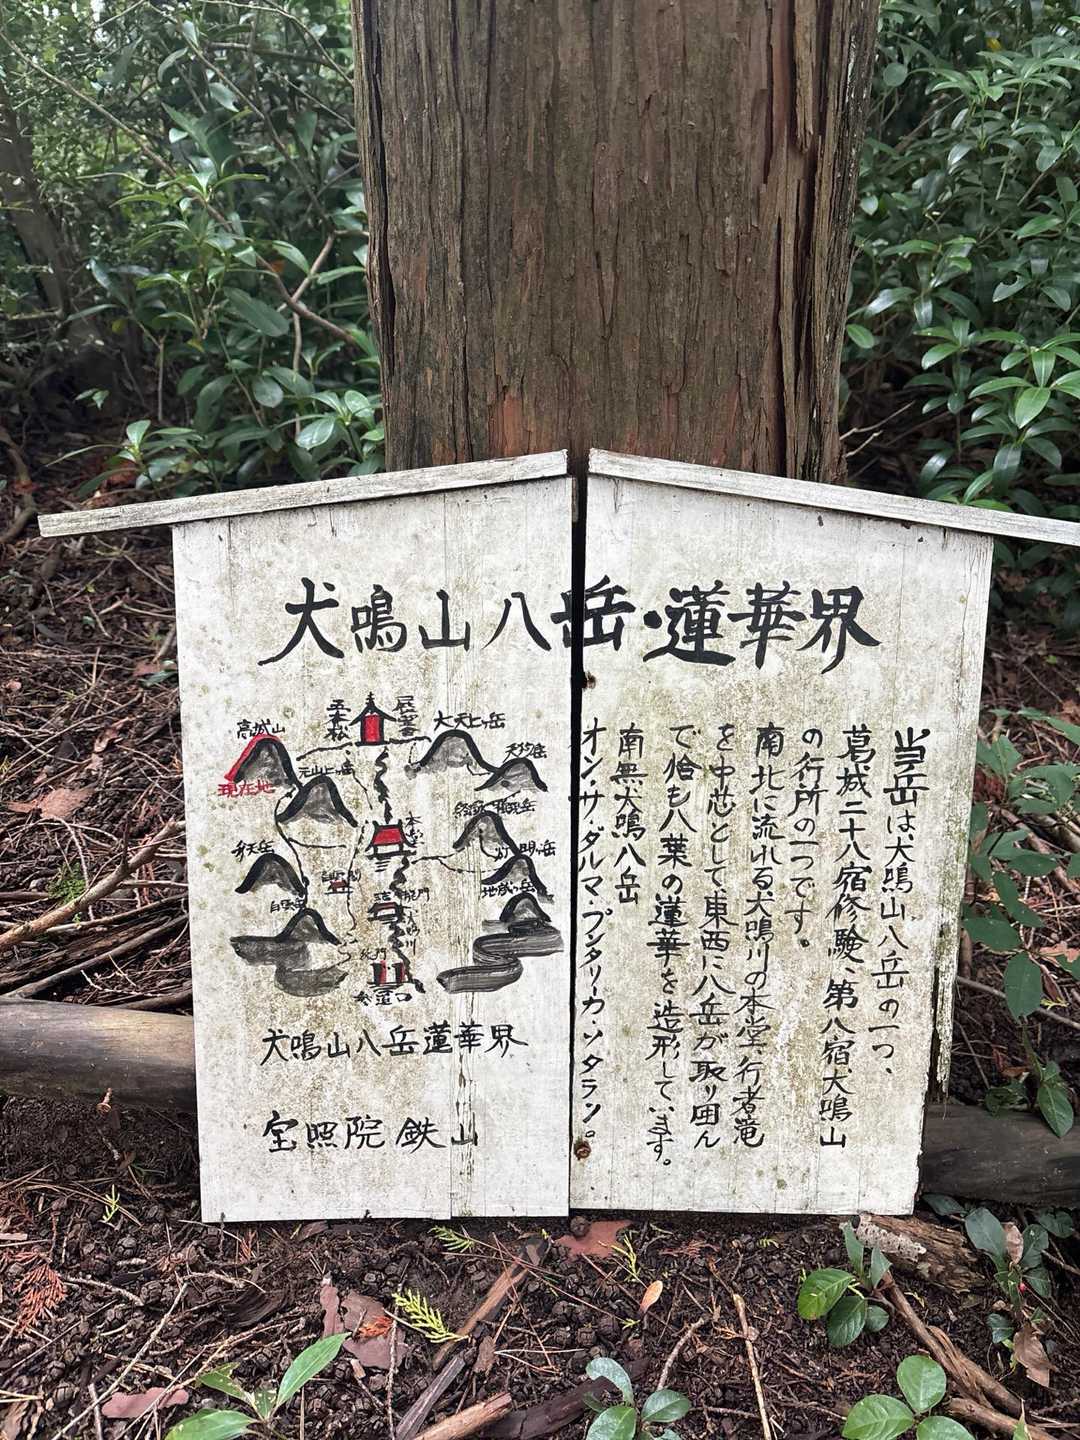 犬鳴山八岳・蓮華界
当岳は、犬鳴山八岳の一つ、
葛城二十八宿修験、第八宿、犬鳴山
の行所の一つです。
南北に流れる犬鳴川の本堂、行者滝
を中芯として、東西に八岳が取り囲ん
で恰も八葉の蓮華を造形しています。
南無犬鳴八岳
オン・サ・ダルマ・プンダリーカ・ソタラン。
五本松
高城山
現在地
元山上ヶ岳
大天上ヶ岳
天竺岳
本堂
灯明ヶ岳
地蔵ヶ岳
弁天岳
犬鳴山八岳蓮華界
宝照院 鉄山